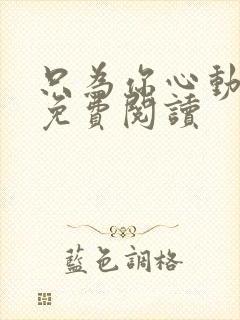 只為你心動
免費閱讀
藍色調格